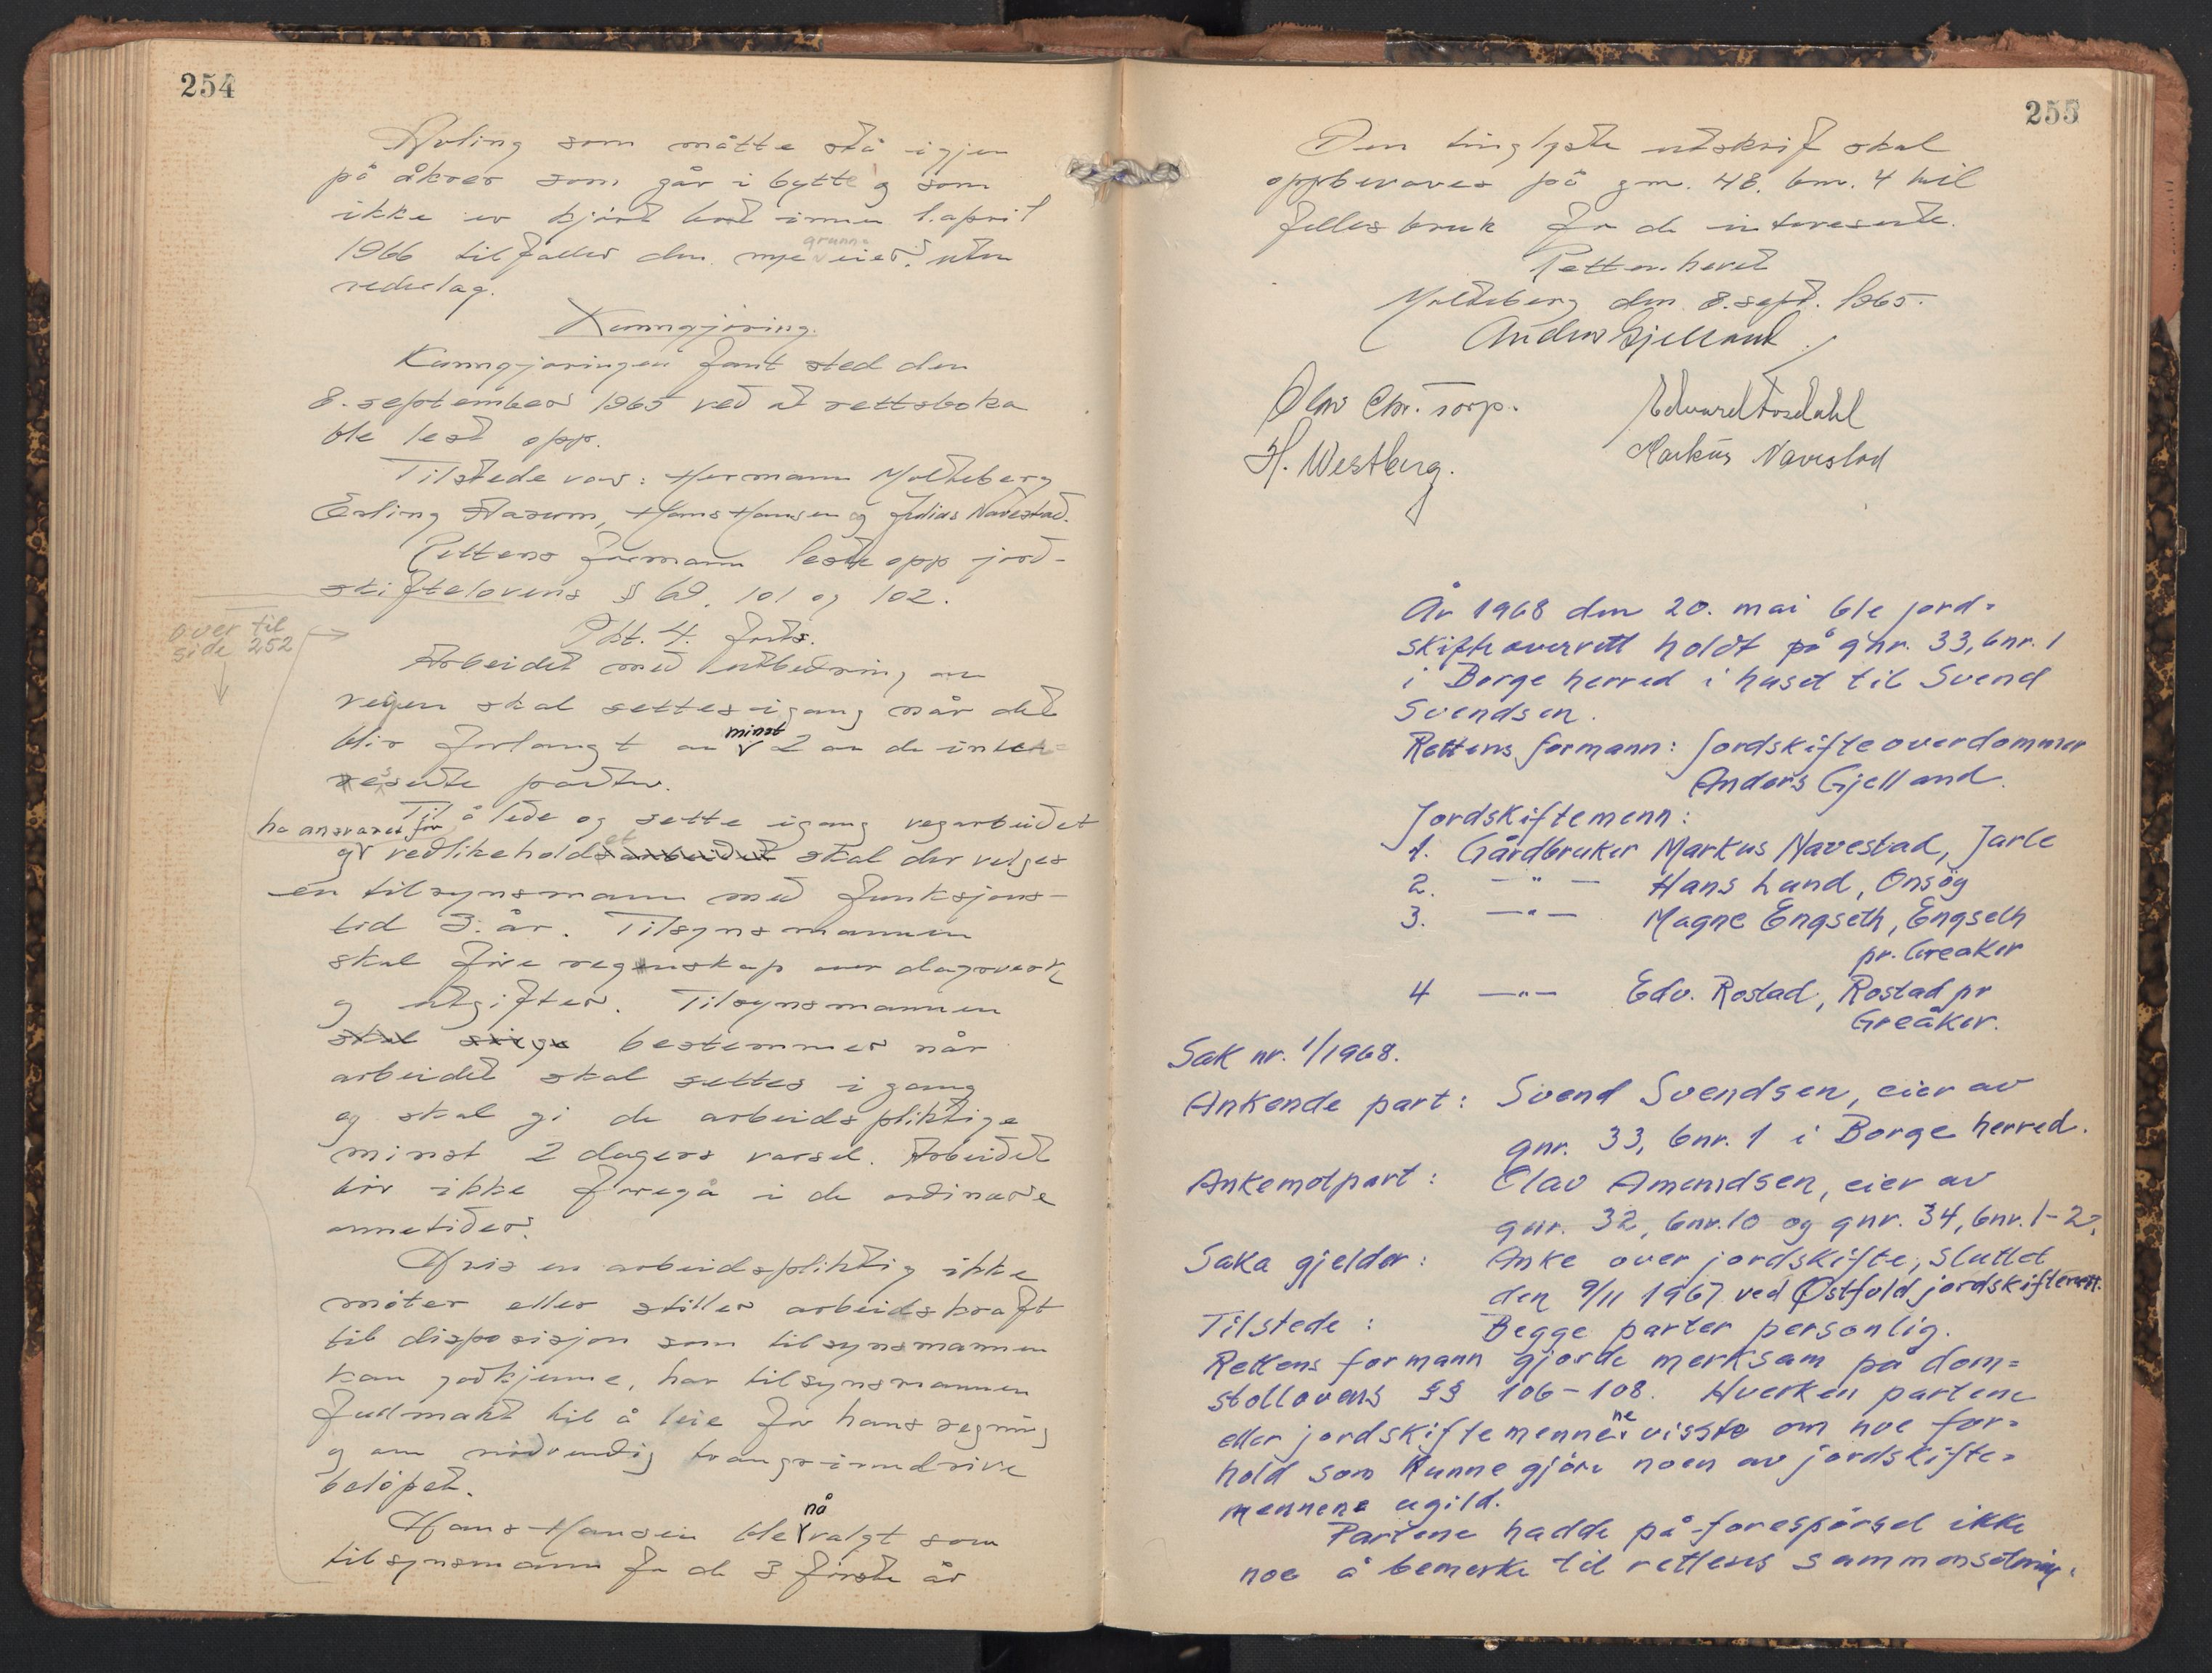 254
Avling som måtte stå igjen
på åkrer som går i bytte og som
ikke er kjørt bort innen 1. april
1966 tilfaller den nye grunn=eier uten
vederlag.
Kunngjøring.
Kunngjøringen fant sted den
8. september 1965 ved at rettsboka
ble lest opp.
Tilstede var: Hermann Molteberg
Erling Stasum, Hans Hansen og Julius Navestad.
Rettens formann leste opp jord-
skiftelovens § 60, 101 og 102.
over til
side 252
Pkt. 4. forts.
Arbeidet med utbedring av
veien skal settes igang når det
blir forlangt av minst 2 av de inter=
esserte parter.
Til å lede og sette igang vegarbeidet
og ha ansvaret for vedlikeholdet skal der velges
en tilsynsmann med funksjons-
tid 3 år. Tilsynsmannen
skal føre regnskap over dagsverk
og utgifter. Tilsynsmannen
skal sørge bestemmer når
arbeidet skal settes i gang
og skal gi de arbeidspliktige
minst 2 dagers varsel. Arbeidet
bør ikke foregå i de ordinære
onnetider.
Hvis en arbeidspliktig ikke
møter eller stiller arbeidskraft
til disposisjon som tilsynsmannen
kan godkjenne, har tilsynsmannen
fullmakt til å leie for hans regning
og om nødvendig tvangsinndrive
beløpet.
Hans Hansen ble nå valgt som
tilsynsmann for de 3 første år
255
Den tinglyste utskrift skal
oppbevares på gnr. 48, bnr. 4 til
felles bruk for de interesserte.
Retten hevet
Molteberg den 8. sept. 1965.
Anders Gjelland
Olav Chr. Torp.
Edvard Fosdahl
H. Westberg.
Markus Navestad
År 1968 den 20. mai ble jord=
skifteoverrett holdt på gnr. 33, bnr. 1
i Borge herred i huset til Svend
Svendsen.
Rettens formann: Jordskifteoverdommer
Anders Gjelland.
Jordskiftemenn:
1. Gårdbruker Markus Navestad, Jarle
2. —"— Hans Lund, Onsøy
3. —"— Magne Engseth, Engseth
pr. Greåker
4 —"— Edv. Rostad, Rostad pr
Greåker.
Sak nr. 1/1968.
Ankende part: Svend Svendsen, eier av
gnr. 33, bnr. 1 i Borge herred.
Ankemotpart: Olav Amundsen, eier av
gnr. 32, bnr. 10 og gnr. 34, bnr. 1-2.
Saka gjelder: Anke over jordskifte, sluttet
den 9/11 1967 ved Østfold jordskifterett.
Tilstede: Begge parter personlig.
Rettens formann gjorde merksam på dom=
stollovens §§ 106-108. Hverken partene
eller jordskiftemennene visste om noe for=
hold som kunne gjøre noen av jordskifte=
mennene ugild.
Partene hadde på forespørsel ikke
noe å bemerke til rettens sammensetning.